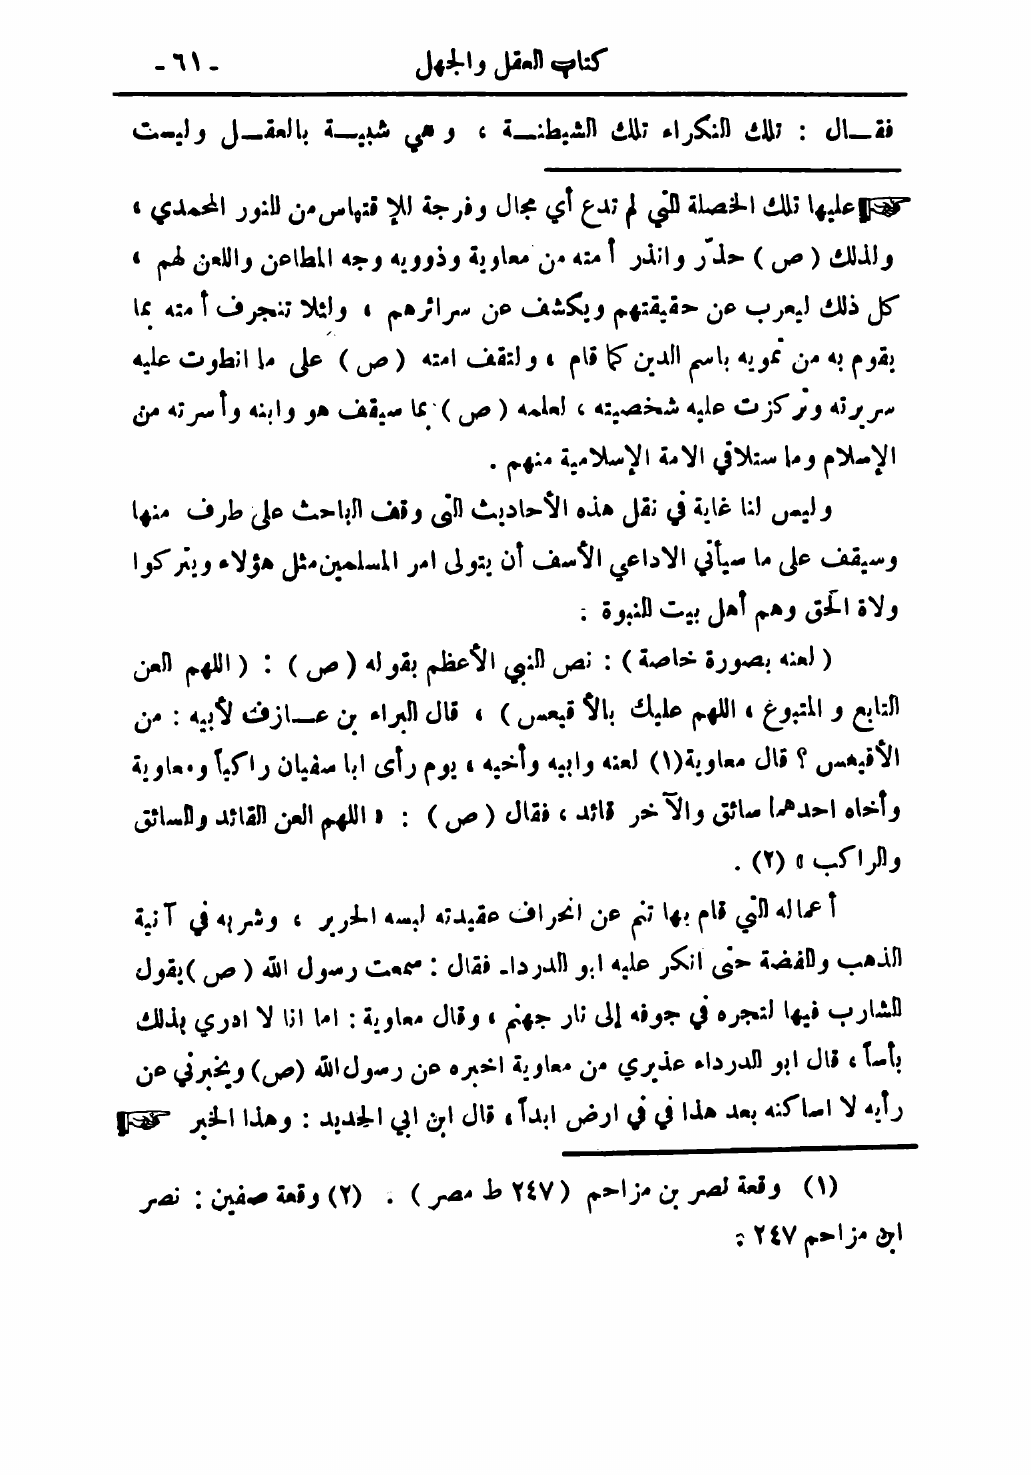 كتاب العقل والجهل - ٦١ -
فقـال : تلك النكراء تلك الشيطنـة ، وهي شبيـة بالعقـل وليست
عليها تلك الخصلة التي لم تدع أي مجال وفرجة للإقتباس من للنور المحمدي ،
ولذلك ( ص ) حذّر وانذر أمته من معاوية وذوويه وجه المطاعن واللعن لهم ،
كل ذلك ليعرب عن حقيقتهم ويكشف عن سرائرهم ، ولئلا تنجرف أمته بما
يقوم به من تمويه باسم الدين كما قام ، ولتقف امته ( ص ) على ما انطوت عليه
سريرته وتركزت عليه شخصيته ، لعلمه ( ص ) بما سيقف هو وابنه وأسرته من
الإسلام وما ستلاقي الامة الإسلامية منهم .
وليس لنا غاية في نقل هذه الأحاديث التى وقف الباحث على طرف منها
وسيقف على ما سيأتي الاداعي الأسف أن يتولى امر المسلمين مثل هؤلاء ويتركوا
ولاة الحق وهم أهل بيت للنبوة :
( لعنه بصورة خاصة ) : نص النبي الأعظم بقوله ( ص ) : ( اللهم العن
التابع و المتبوع ، اللهم عليك بالأقيعس ) ، قال البراء بن عـازف لأبيه : من
الأقيعس ؟ قال معاوية(١) لعنه وابيه وأخيه ، يوم رأى ابا سفيان راكباً ومعاوية
وأخاه احدهما سائق والآخر قائد ، فقال ( ص ) : « اللهم العن القائد والسائق
والراكب » (٢) .
أعماله التي قام بها تنم عن انحراف عقيدته لبسه الحرير ، وشربه في آنية
الذهب والفضة حتى انكر عليه ابو الدرداء فقال : سمعت رسول الله ( ص )يقول
للشارب فيها لتجره في جوفه إلى نار جهنم ، وقال معاوية : اما انا لا ادري بذلك
بأساً ، قال ابو الدرداء عذيري من معاوية اخبره عن رسول الله (ص) ويخبرني عن
رأيه لا اساكنه بعد هذا في في ارض ابداً ، قال ابن ابي الحديد : وهذا الخبر
(١) وقعة لصر بن مزاحم ( ٢٤٧ ط مصر ) . (٢) وقعة صفين : نصر
ابن مزاحم ٢٤٧ :